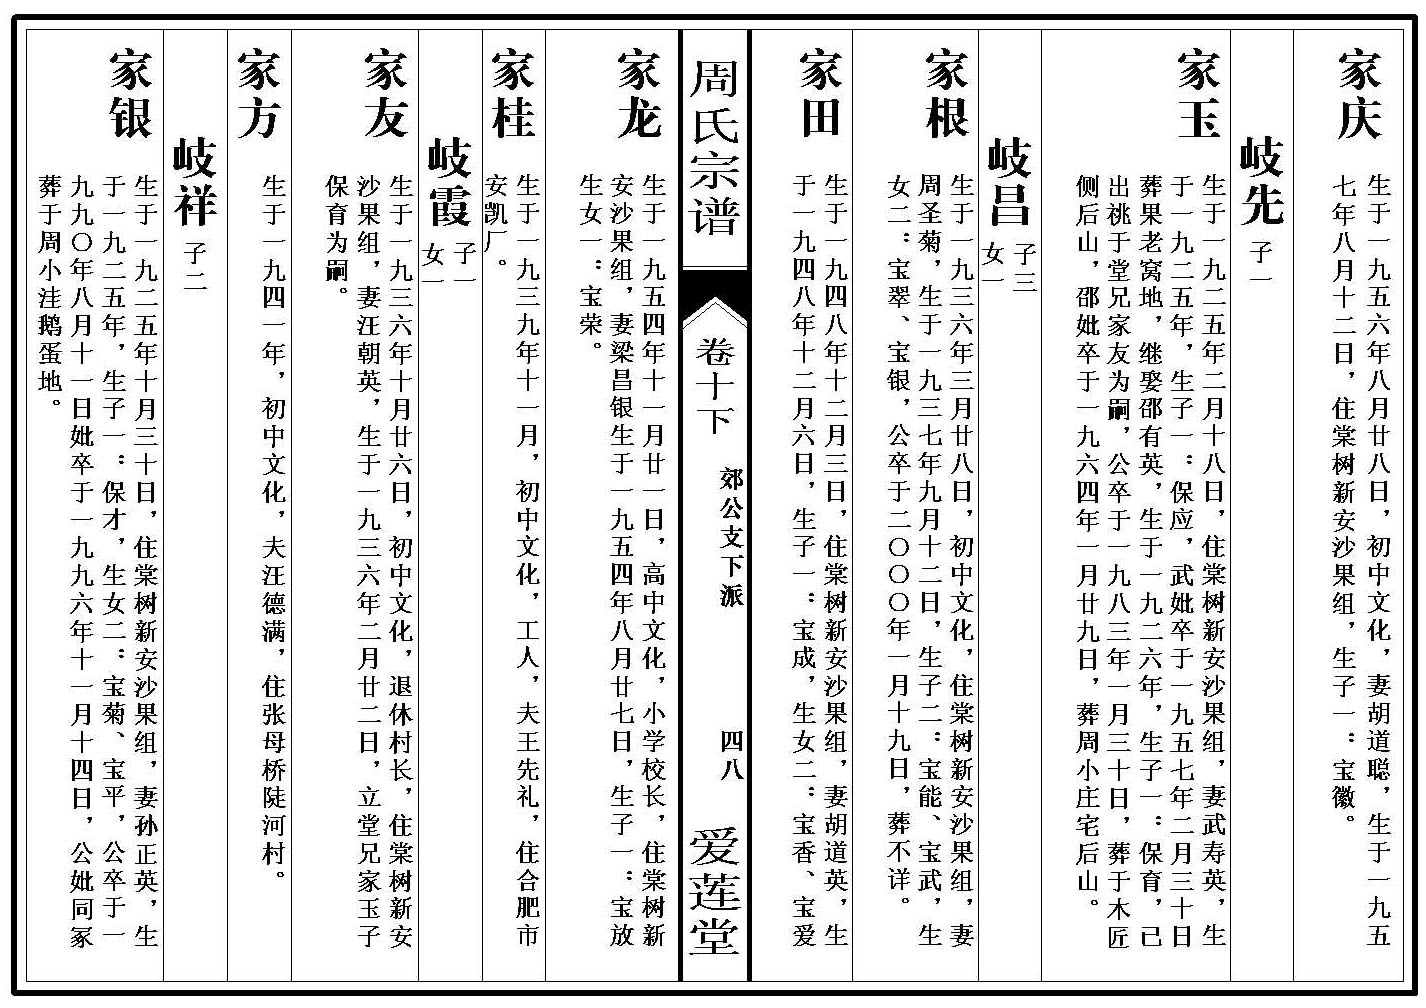 家庆
生于一九五六年八月廿八日，初中文化，妻胡道聪，生于一九五
七年八月十二日，住棠树新安沙果组，生子一：宝徽。
岐先
子一
家玉
生于一九二五年二月十八日，住棠树新安沙果组，妻武寿英，生
于一九二五年，生子一：保应，武妣卒于一九五七年二月三十日
葬果老窝地，继娶邵有英，生于一九二六年，生子一：保育，已
出祧于堂兄家友为嗣，公卒于一九八三年一月三十日，葬于木匠
侧后山，邵妣卒于一九六四年一月廿九日，葬周小庄宅后山。
岐昌
子三
女一
家根
生于一九三六年三月廿八日，初中文化，住棠树新安沙果组，妻
周圣菊，生于一九三七年九月十二日，生子二：宝能、宝武，生
女二：宝翠、宝银，公卒于二〇〇〇年一月十九日，葬不详。
家田
生于一九四八年十二月三日，住棠树新安沙果组，妻胡道英，生
于一九四八年十二月六日，生子一：宝成，生女二：宝香、宝爱
周氏宗谱
卷十下
郊公支下派
四八
爱莲堂
家龙
生于一九五四年十一月廿一日，高中文化，小学校长，住棠树新
安沙果组，妻梁昌银生于一九五四年八月廿七日，生子一：宝放
生女一：宝荣。
家桂
生于一九三九年十一月，初中文化，工人，夫王先礼，住合肥市
安凯厂。
岐霞
子一
女一
家友
生于一九三六年十月廿六日，初中文化，退休村长，住棠树新安
沙果组，妻汪朝英，生于一九三六年二月廿二日，立堂兄家玉子
保育为嗣。
家方
生于一九四一年，初中文化，夫汪德满，住张母桥陡河村。
岐祥
子二
家银
生于一九二五年十月三十日，住棠树新安沙果组，妻孙正英，生
于一九二五年，生子一：保才，生女二：宝菊、宝平，公卒于一
九九〇年八月十一日妣卒于一九九六年十一月十四日，公妣同冢
葬于周小洼鹅蛋地。